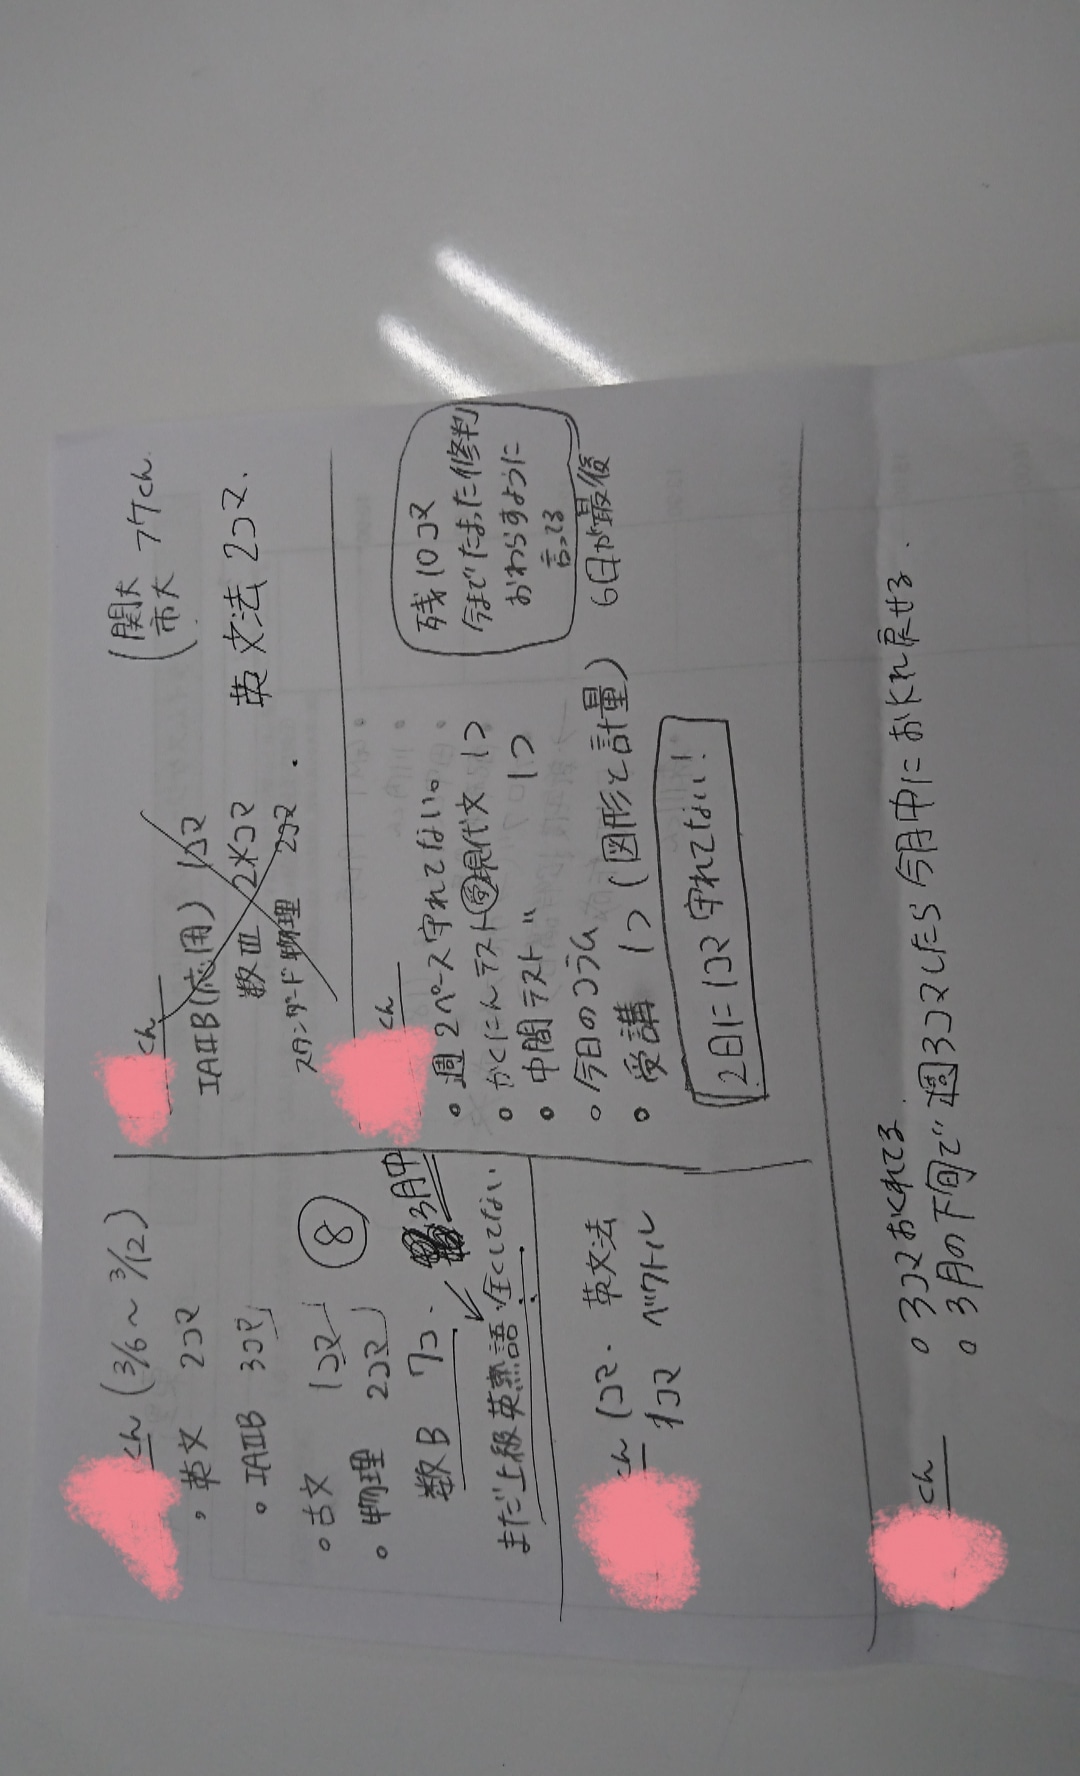 くん (3/6～3/12)
・英文 2コマ
・IAⅡB 3コマ
○古文 1コマ
○物理 2コマ
⑧
数B 7コ. 3月中
まだ上級英熟語 全くしてない
くん
IAⅡB(応用) 1コマ
数Ⅲ 2コマ
スタンダード物理 2コマ.
(関大
市大 ファくん
英文法 2コマ.
くん
○週2ペース守れてない。
○かくにんテスト受現代文 1つ
○中間テスト 1つ
○今日のコラム
○受講 1つ (図形と計量)
2日に1コマ守れてない!
残10コマ
今までたまった修判
おわらすように
言ってる
6日が最後
くん 1コマ. 英文法
1コマ ベクトル
くん
○3コマおくれてる
○3月の下旬で週3コマしたら今月中におくれ戻せる.